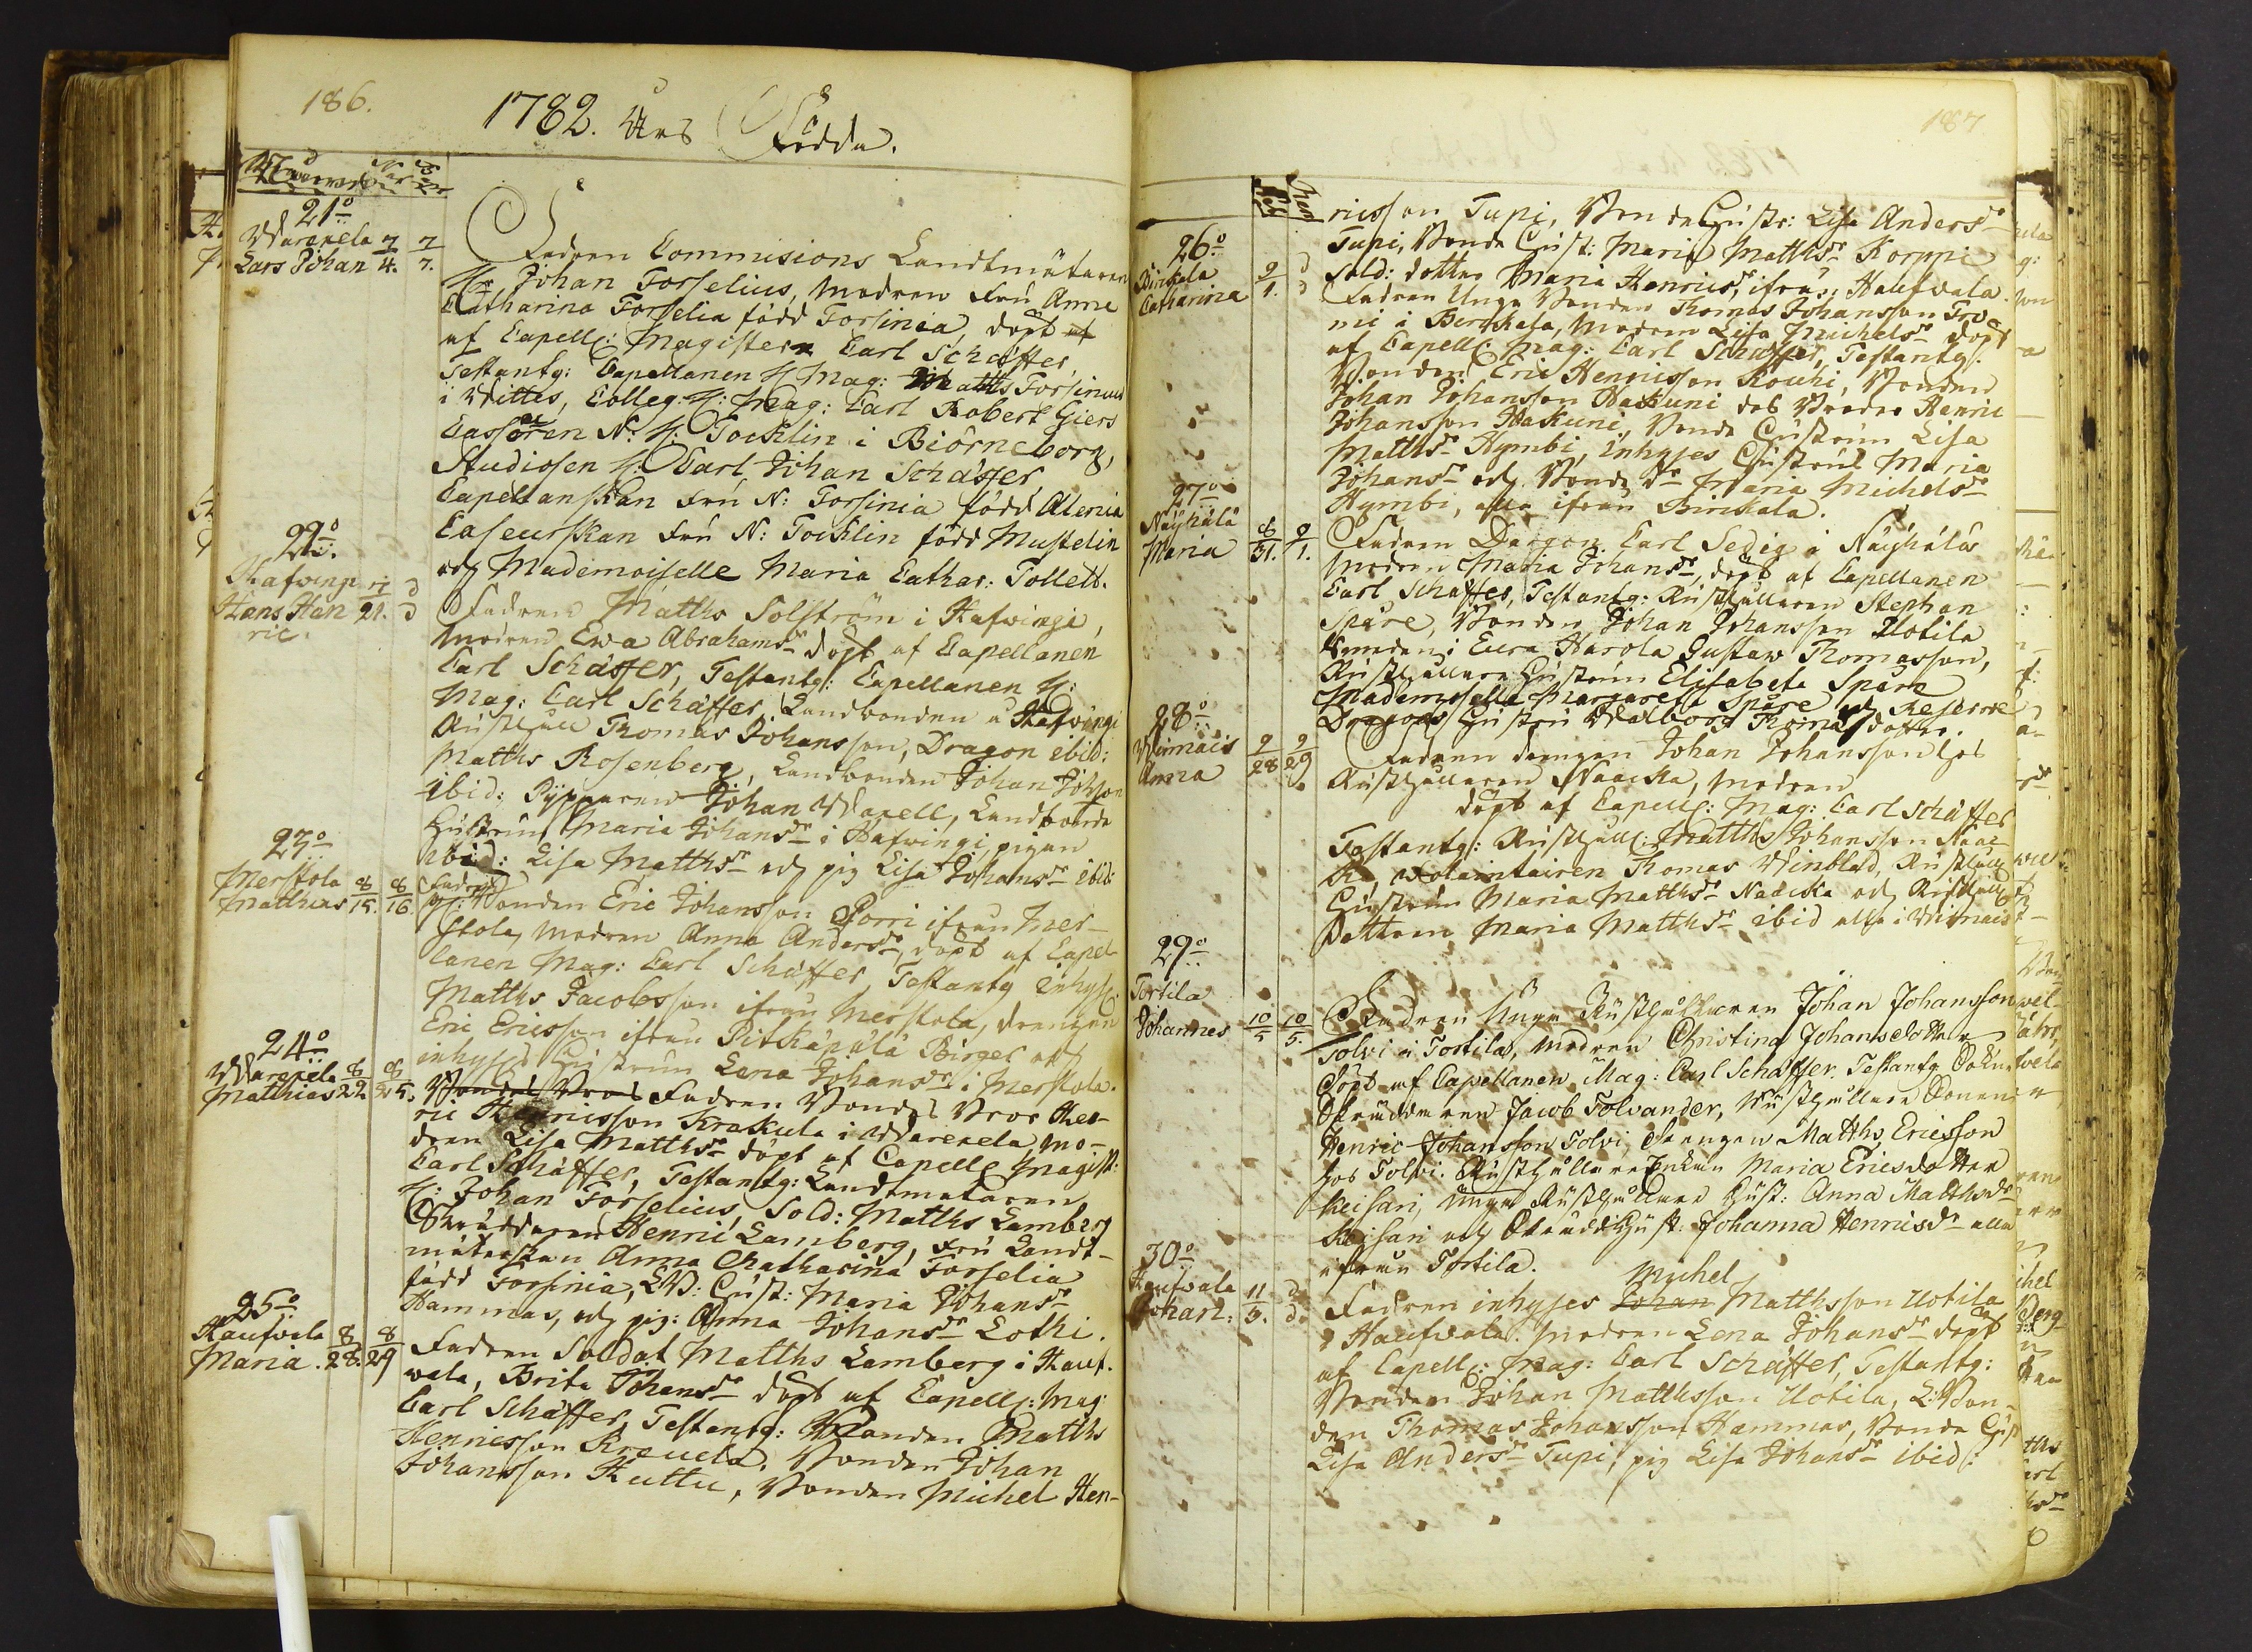 186.
1782. Års Födda.
21o
Warapela 7/4. 7/7.
Lars Johan
Fadren Commisions Landtmätaren
Hr Johan Forselius, Modren Fru Anne
Catharina Forselia född Forsinia, döpt
af Capell: Magistern Carl Schäffer,
Testantg: Capellanen H: Mag: Matths Forsinius
i Wittes, Colleg: H: Mag: Carl Robert Giers
Casseuren N: H: Tocklin i Biörneborg,
Studiosen H: Carl Johan Schäffer
Capellanskan Fru N: Forsinia född Alenia
Caseurskan Fru N: Tocklin född Mustelin
och Mademoiselle Maria Cathar: Tollett.
22o
Hafwingi 7/21. d d
Hans Hän
ric.
Fadren Matths Solström i Hafwingi,
Modren Ewa Abrahamsdr döpt af Capellanen
Carl Schäffer, Testantg: Capellanen H:
Mag: Carl Schäffer, Landbonden i Hafwingi
Rusthåll Thomas Johansson, Dragon ibid:
Matths Rosenberg, Landbonden Johan Johsson
ibid: Johan Warell, Landbonde
hustrun Maria Johansdr i Hafwingi, pigan
ibid: Lisa Matthsdr och pig Lisa Johansdr ibid:
23o
Merstola 8/15. 8/16.
Mathias
Fadren
Bonden Eric Johansson Porri ifrån Mer-
stola, modren Anna Andersdr, döpt af Capel-
lanen Mag: Carl Schäffer, Testantg inhyses
Matths Jacobsson ifrån Merstola, drengen
Eric Ericsson ifrån Pitkäpälä Birger och
inhyses hustrun Lena Johansdr i Merstola.
24o
Warapela 8/22 8/25.
Matthias
Bondes Bror Fadren Bondes Bror Hen-
ric Henricsson Krakula i Warepela, mo-
dren Lisa Matthsdr döpt af Capell: Magist:
Carl Schäffer, Testantg: Landtmätaren
H: Johan Forselius, Sold: Matths Lamberg
Skräddaren Henric Lamberg, Fru Landt-
mäterskan Anna Chatharina Forselia
född Forsinia, L:B: Hust: Maria Johansdr
Hammas, och pig: Anna Johansdr Lothi.
25o
Haufwala 8/28. 8/29
Maria.
Fadren Soldat Matths Lamberg i Hauf-
wala, Brita Johansdr döpt af Capell: Mag:
Carl Schäffer, Testantg: Bonden Matths
Henricsson Krouela, Bonden Johan
Johansson Huttu, Bonden Michel Hen-
187
ricsson Tupi, Bonde Hustr: Lisa Andersdr
Tupi, Bonde Hust: Maria Matthsdr Korppi
Sold: dotter Maria Henricsdr, ifrån Haufwala.
26o
Birkala 9/1. d d
Catharina
Fadren Unga Bonden Thomas Johansson Tro
mi i Birkkala, Modren Lisa Michelsdr döpt
af Capell: Mag: Carl Schäffer, Testantg:
Bonden Eric Henricsson Rouhi, Bonden
Johan Johansson Hakuni des Broder Henric
Johansson Hakuni, Bonde Hustrun Lisa
Matthsdr Hymbi, inhyses Hustrun Maria
Johansdr och Bonde dr Maria Michelsdr
Hymbi, alla ifrån Birkala.
27o
Näyhälä 8/31. 9/1.
Maria
Fadren Dragon Carl Sedig i Näyhälä
Modren Maria Johansdr, döpt af Capellanen
Carl Schäffer, Testantg: Rusthållaren Stephan
Spåre, Bonden Johan Johansson Uotila
Bonden i Eura Harola Gustaw Thomasson,
Rusthållare Hustrun Elisabeta Spåre
Mademoiselle Margareta Spåre och Reserve
Dragons Hustru Walborg Thomasdotter.
28o
Winnais 9/28 9/29
Anna
Fadren drengen Johan Johansson hos
Rusthållaren Naacka, Modren
döpt af Capell: Mag: Carl Schäffer
Testantg: Rusthåll: Matths Johansson Naac-
ka Volaintairen Thomas Winblad, Rusthåll:
Hustrun Maria Matthsdr Naacka och Rusthåll:
Dottren Maria Matthsdr ibid alla i Winnais
29o
Tortila 10/5 10/5.
Johannes
Fadren Unga Rusthållaren Johan Johansson
Tolvi i Tortila, modren Christina Johansdotter
Döpt af Capellanen Mag: Carl Schäffer. Testantg Sokne
Skräddaren Jacob Tolvander, Rusthållare Sonen
Henric Johansson Tolvi, Drengen Matths Ericsson
hos Tolvi. Rusthållare Enkan Maria Ericsdotter
Keisari, Unga Rusthållare Hust: Anna Matthsdr
Keisari och Skräddhust: Johanna Henricsdr alla
ifrån Tortila.
30o
Haufwala 11/3. d d
Johan:
Michel
Fadren inhyses Johan Matthsson Uotila
i Haufwala. Modren Lena Johansdr döpt
af Capell: Mag: Carl Schäffer, Testantg:
Bonden Johan Matthsson Uotila, L:Bon-
den Thomas Johansson Hammas, Bonde Hust
Lisa Andersdr Tupi, pig Lisa Johansdr ibid: